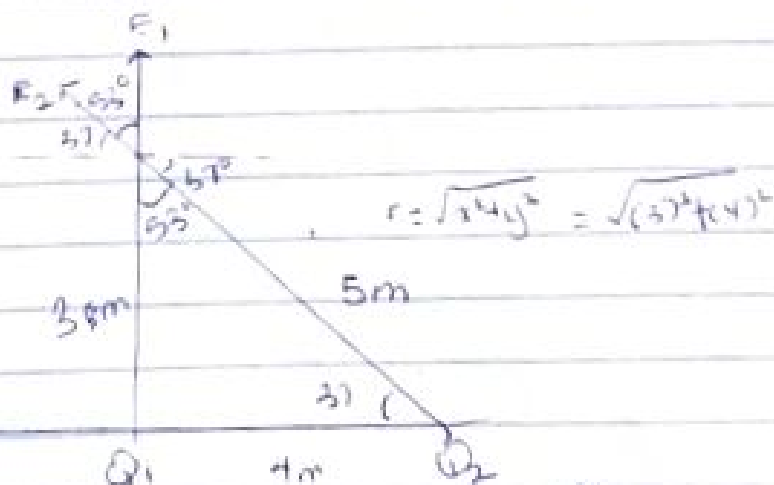 F₁
F₂ 53°
37
37°
53°
r = √x²+y² = √(3)²+(4)²
3m
5m
37
Q₁ 4m Q₂